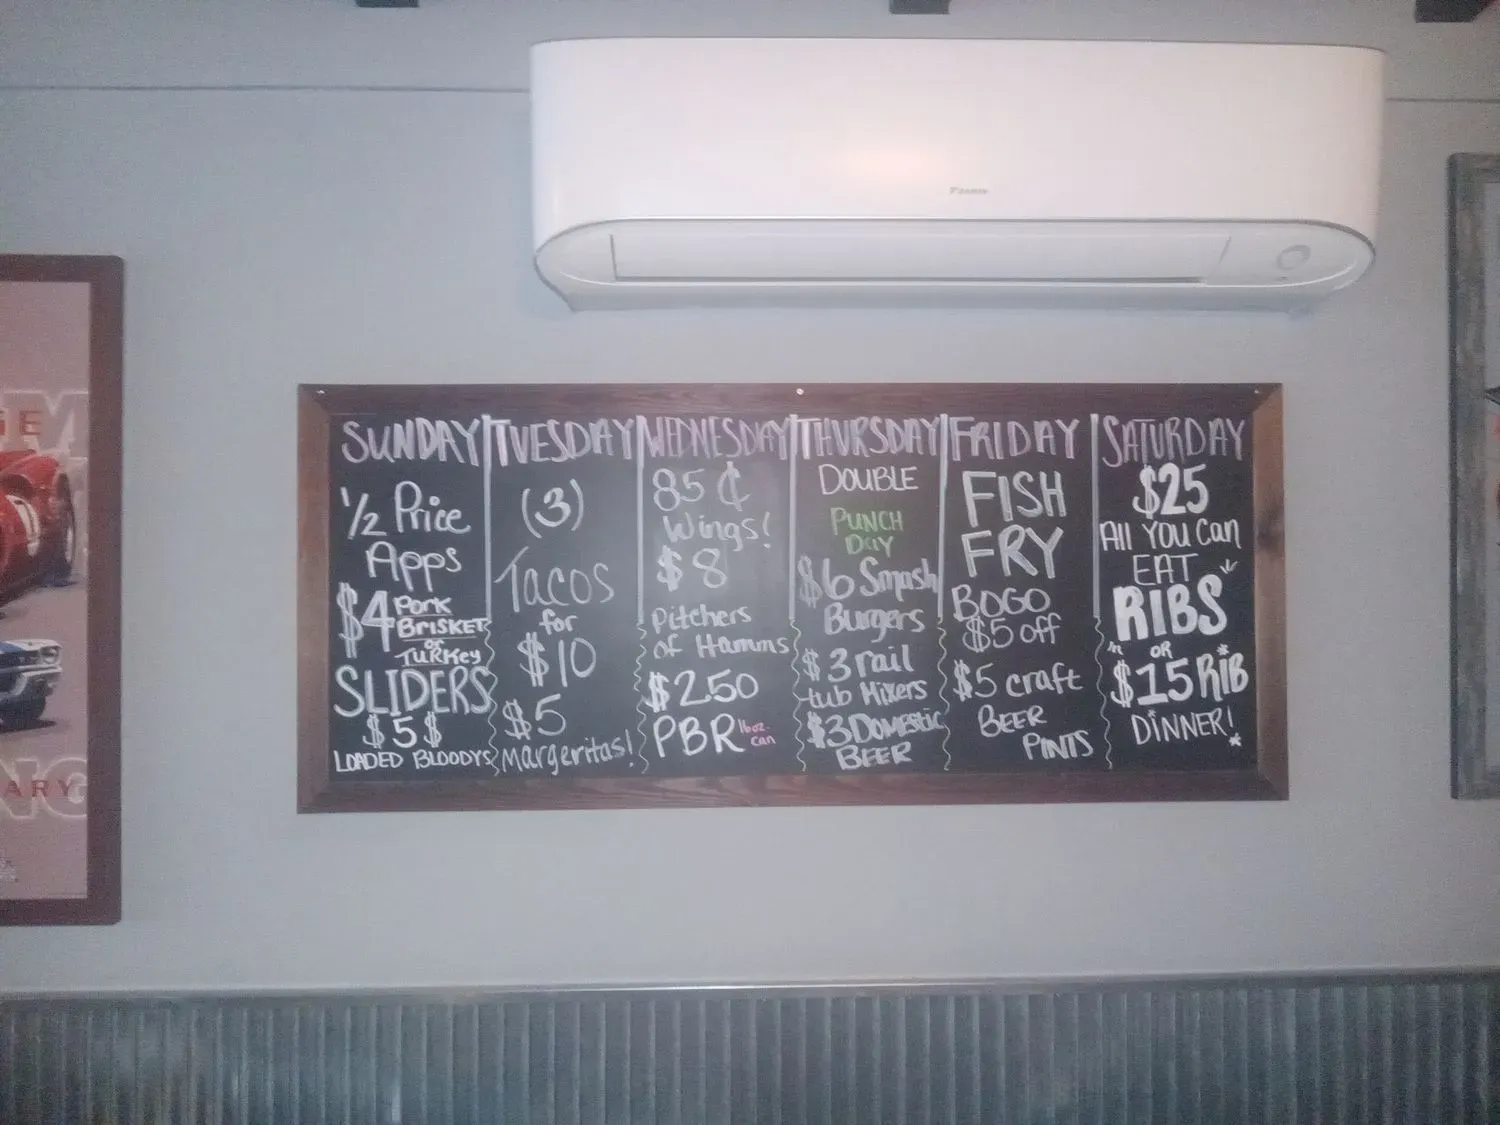 SUNDAY
1/2 Price
Apps
$4 Pork
BRISKET
or
TURKEY
SLIDERS
$5$
LOADED BLOODYS
TUESDAY
(3)
Tacos
for
$10
$5
Margeritas!
WEDNESDAY
85¢
Wings!
$8
Pitchers
of Hamms
$2.50
PBR 16oz. can
THURSDAY
DOUBLE
PUNCH
DAY
$6 Smash
Burgers
$3 rail
tub Mixers
$3 DOMESTIC
BEER
FRIDAY
FISH
FRY
BOGO
$5 off
$5 craft
BEER
PINTS
SATURDAY
$25
All YOU Can
EAT
RIBS
OR
$15 RIB
DINNER!
IE
ARY